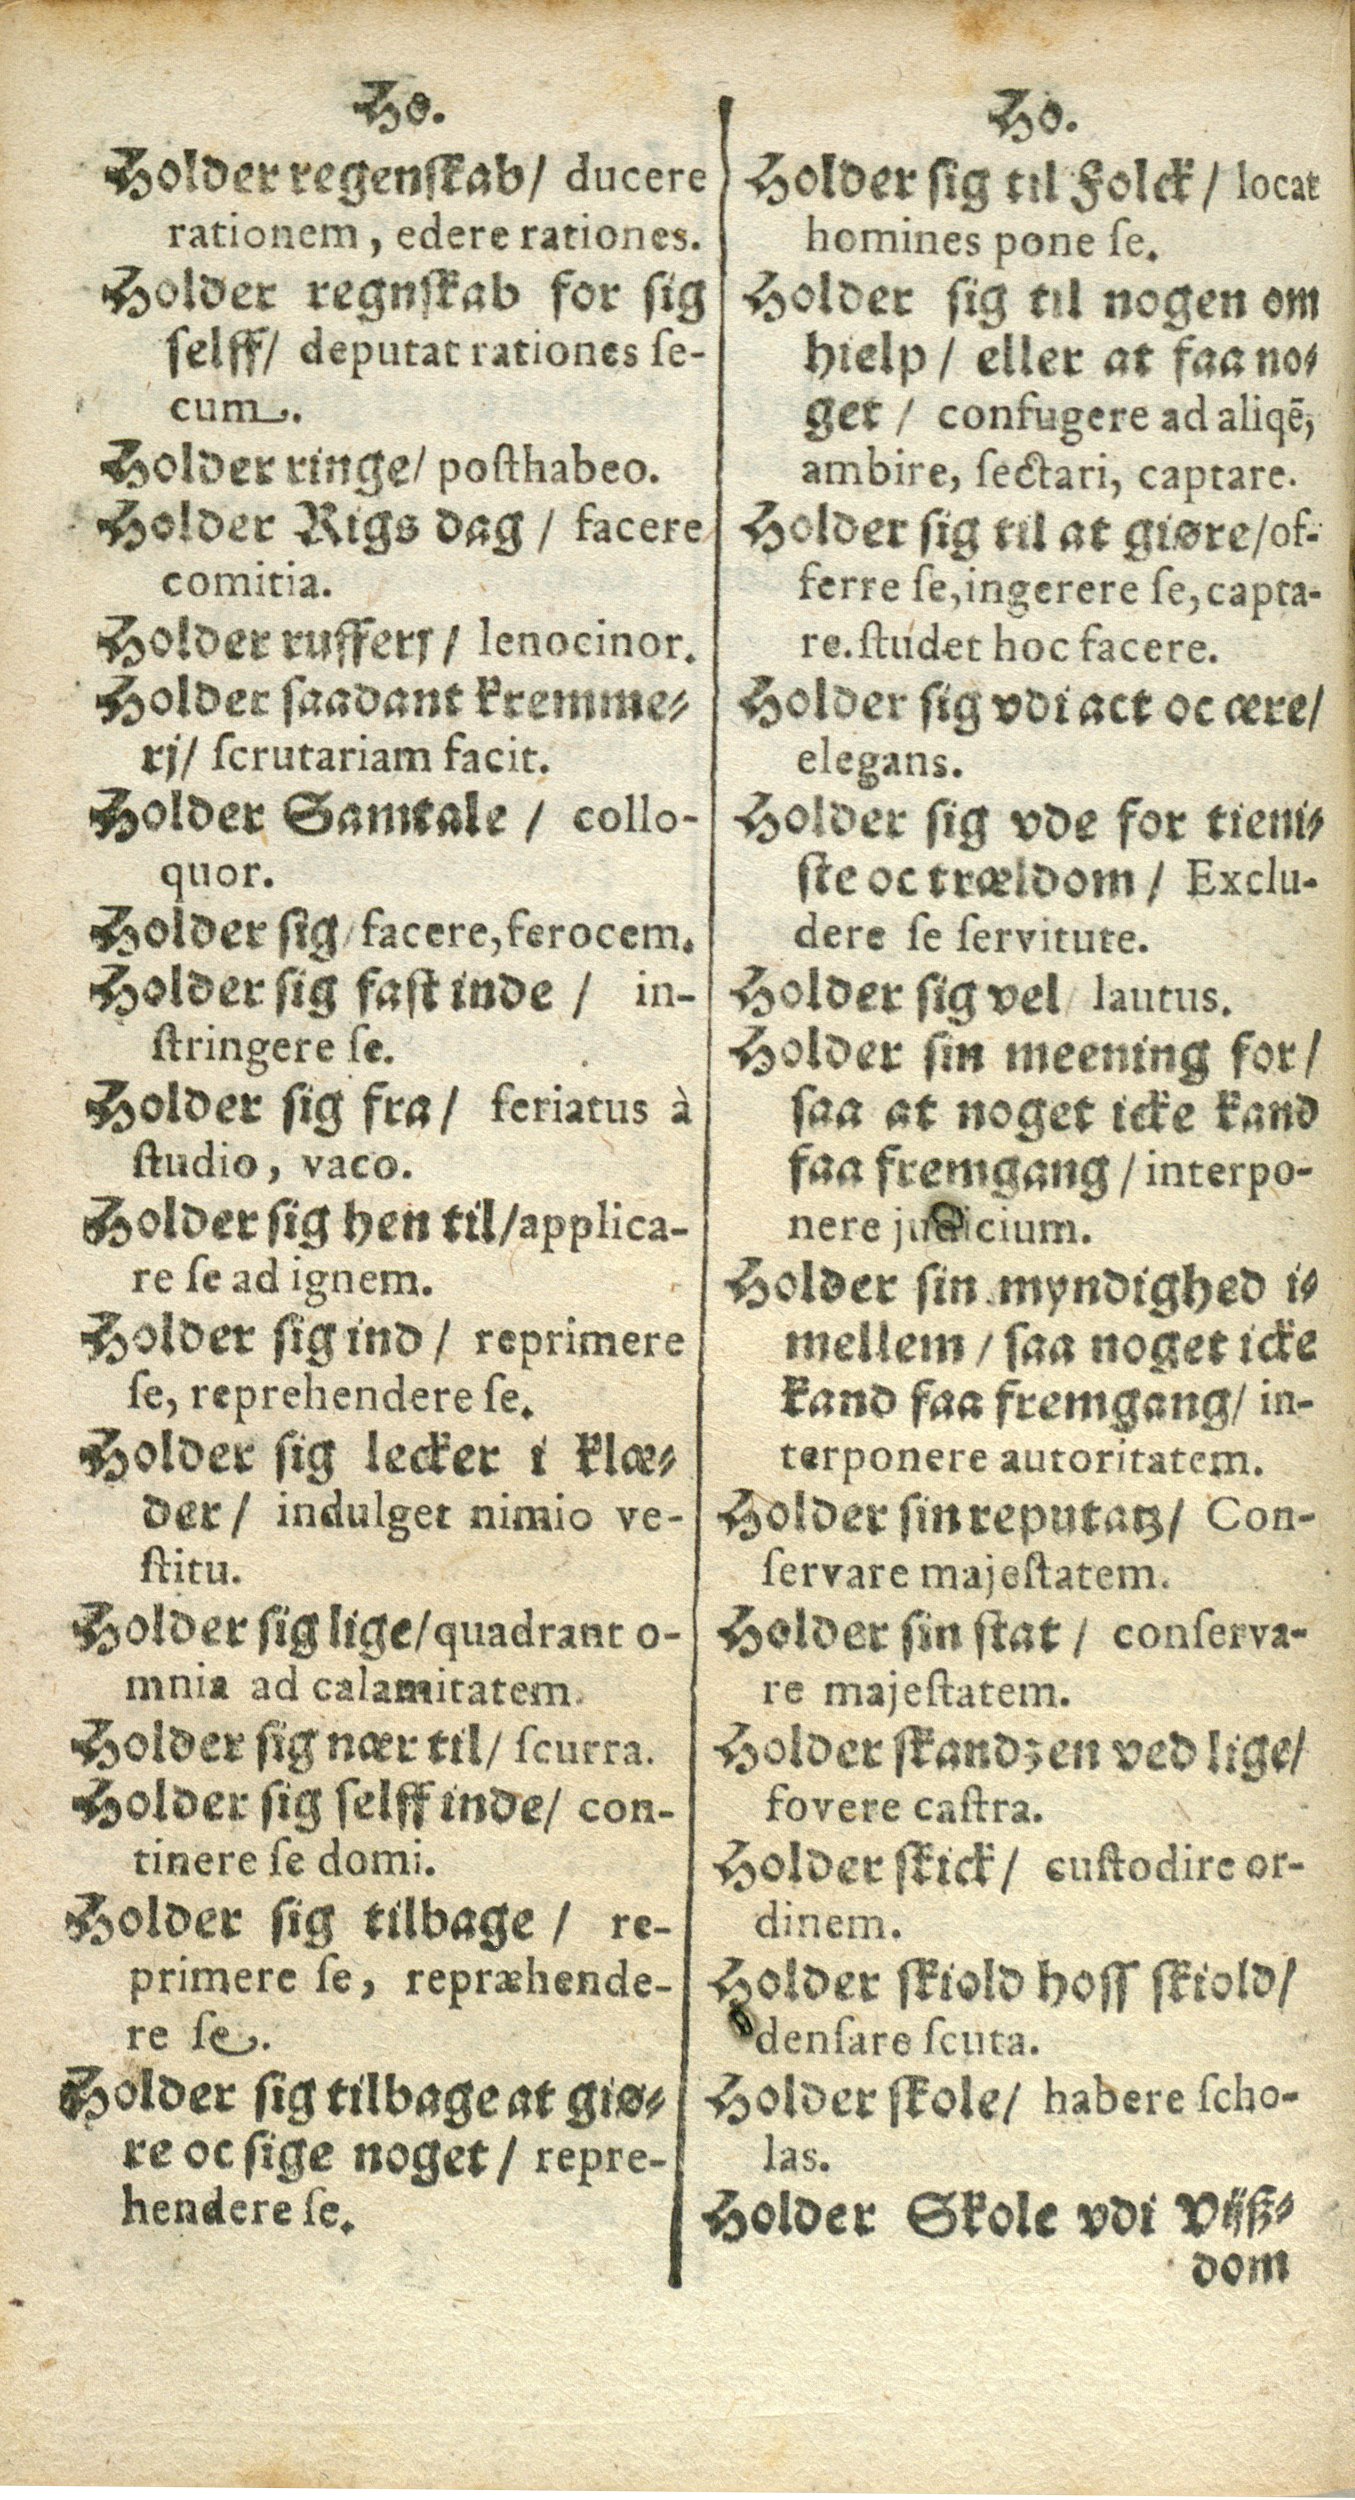 Ho.
Holder regenſkab/ ducere
rationem, edere rationes.
Holder regnſkab for ſig
ſelff/ deputat rationes ſe-
cum.
Holder ringe/ poſthabeo.
Holder Rigs dag / facere
comitia.
Holder rufferj / lenocinor.
Holder ſaadant kremme-
rj/ ſcrutariam facit.
Holder Samtale / collo-
quor.
Holder ſig/ facere, ferocem.
Holder ſig faſt inde / in-
ſtringere ſe.
Holder ſig fra/ feriatus à
ſtudio, vaco.
Holder ſig hen til/applica-
re ſe ad ignem.
Holder ſig ind / reprimere
ſe, reprehendere ſe.
Holder ſig lecker i klæ-
der/ indulget nimio ve-
ſtitu.
Holder ſig lige/quadrant o-
mnia ad calamitatem.
Holder ſig nær til/ ſcurra.
Holder ſig ſelff inde/ con-
tinere ſe domi.
Holder ſig tilbage / re-
primere ſe, repræhende-
re ſe.
Holder ſig tilbage at giø-
re oc ſige noget / repre-
hendere ſe.
Ho.
Holder ſig til Folck / locat
homines pone ſe.
Holder ſig til nogen om
hielp / eller at faa no-
get / confugere ad aliqē,
ambire, ſectari, captare.
Holder ſig til at giøre/of-
ferre ſe, ingerere ſe, capta-
re. ſtudet hoc facere.
Holder ſig vdi act oc ære/
elegans.
Holder ſig vde for tieni-
ſte oc trældom / Exclu-
dere ſe ſervitute.
Holder ſig vel/ lautus.
Holder ſin meening for/
ſaa at noget icke kand
faa fremgang / interpo-
nere judicium.
Holder ſin myndighed i-
mellem / ſaa noget icke
kand faa fremgang/ in-
terponere autoritatem.
Holder ſin reputatz/ Con-
ſervare majeſtatem.
Holder ſin ſtat / conſerva-
re majeſtatem.
Holder ſkandzen ved lige/
fovere caſtra.
Holder ſkick/ cuſtodire or-
dinem.
Holder ſkiold hoſſ ſkiold/
denſare ſcuta.
Holder ſkole/ habere ſcho-
las.
Holder Skole vdi Vijß-
dom